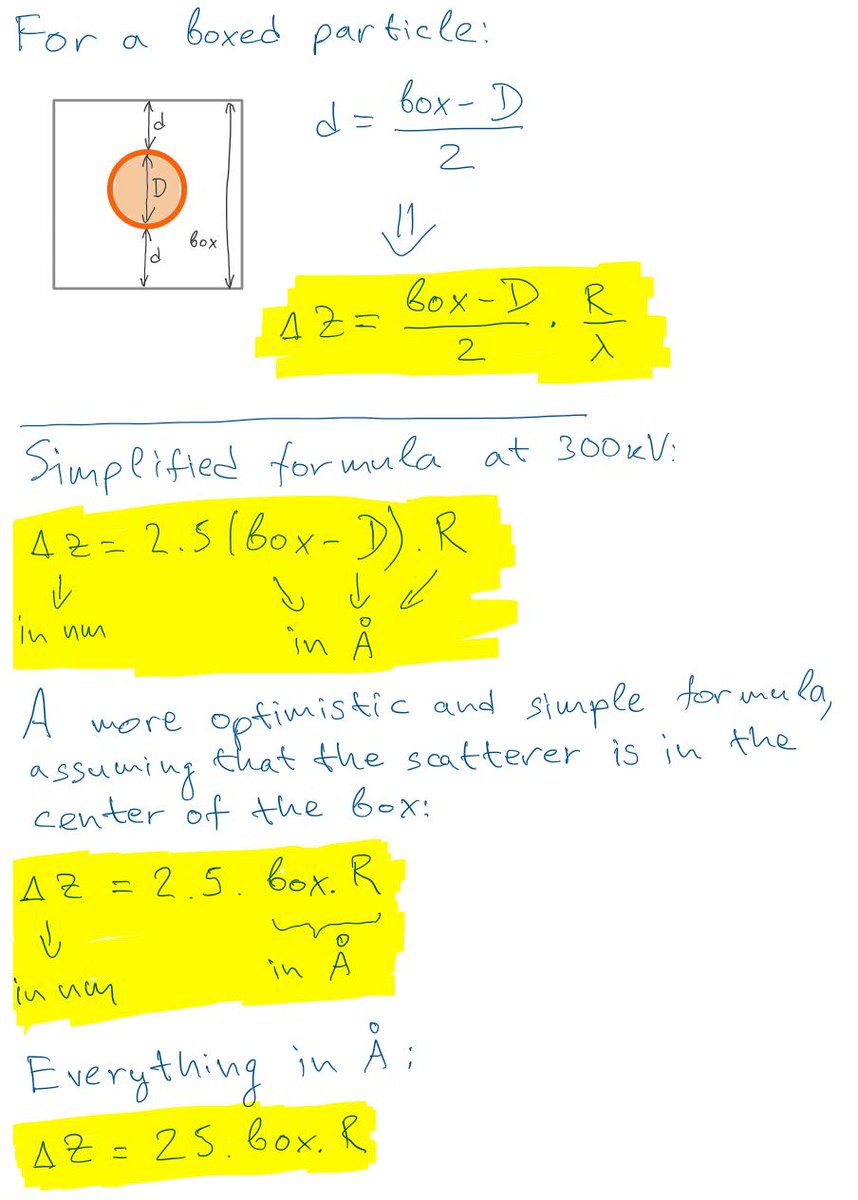 For a boxed particle:
d
D
d
box
d = (box - D)/2
⇓
ΔZ = (box - D)/2 · R/λ
Simplified formula at 300kV:
ΔZ = 2.5(box - D).R
↓ ↘ ↓ ↙
in nm in Å
A more optimistic and simple formula,
assuming that the scatterer is in the
center of the box:
ΔZ = 2.5. box. R
↓
in nm in Å
Everything in Å:
ΔZ = 25. box. R